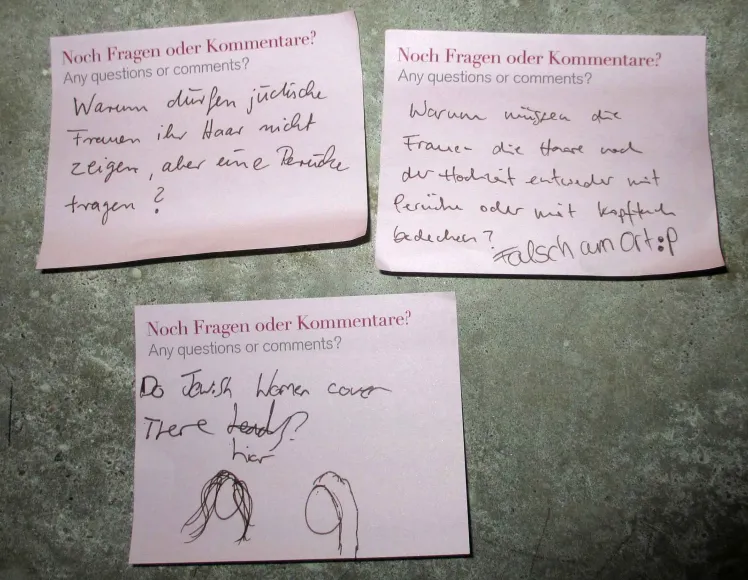 Noch Fragen oder Kommentare?
Any questions or comments?
Warum dürfen jüdische
Frauen ihr Haar nicht
zeigen, aber eine Perücke
tragen?
Noch Fragen oder Kommentare?
Any questions or comments?
Warum müssen die
Frauen die Haare nach
der Hochzeit entweder mit
Perücke oder mit Kopftuch
bedecken?
Falsch am Ort :P
Noch Fragen oder Kommentare?
Any questions or comments?
Do Jewish Women cover
There heads?
hier